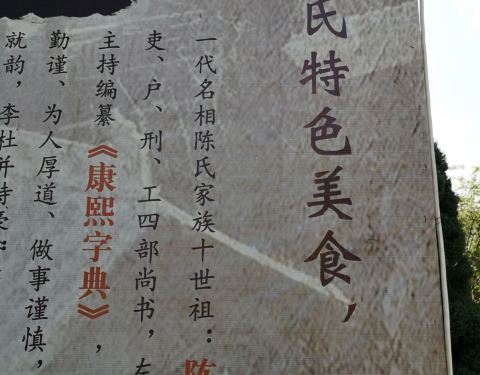 氏特色美食，
一代名相陈氏家族十世祖：陈
吏、户、刑、工四部尚书，左
主持编纂《康熙字典》，
勤谨、为人厚道、做事谨慎，
就韵，李杜并诗豪